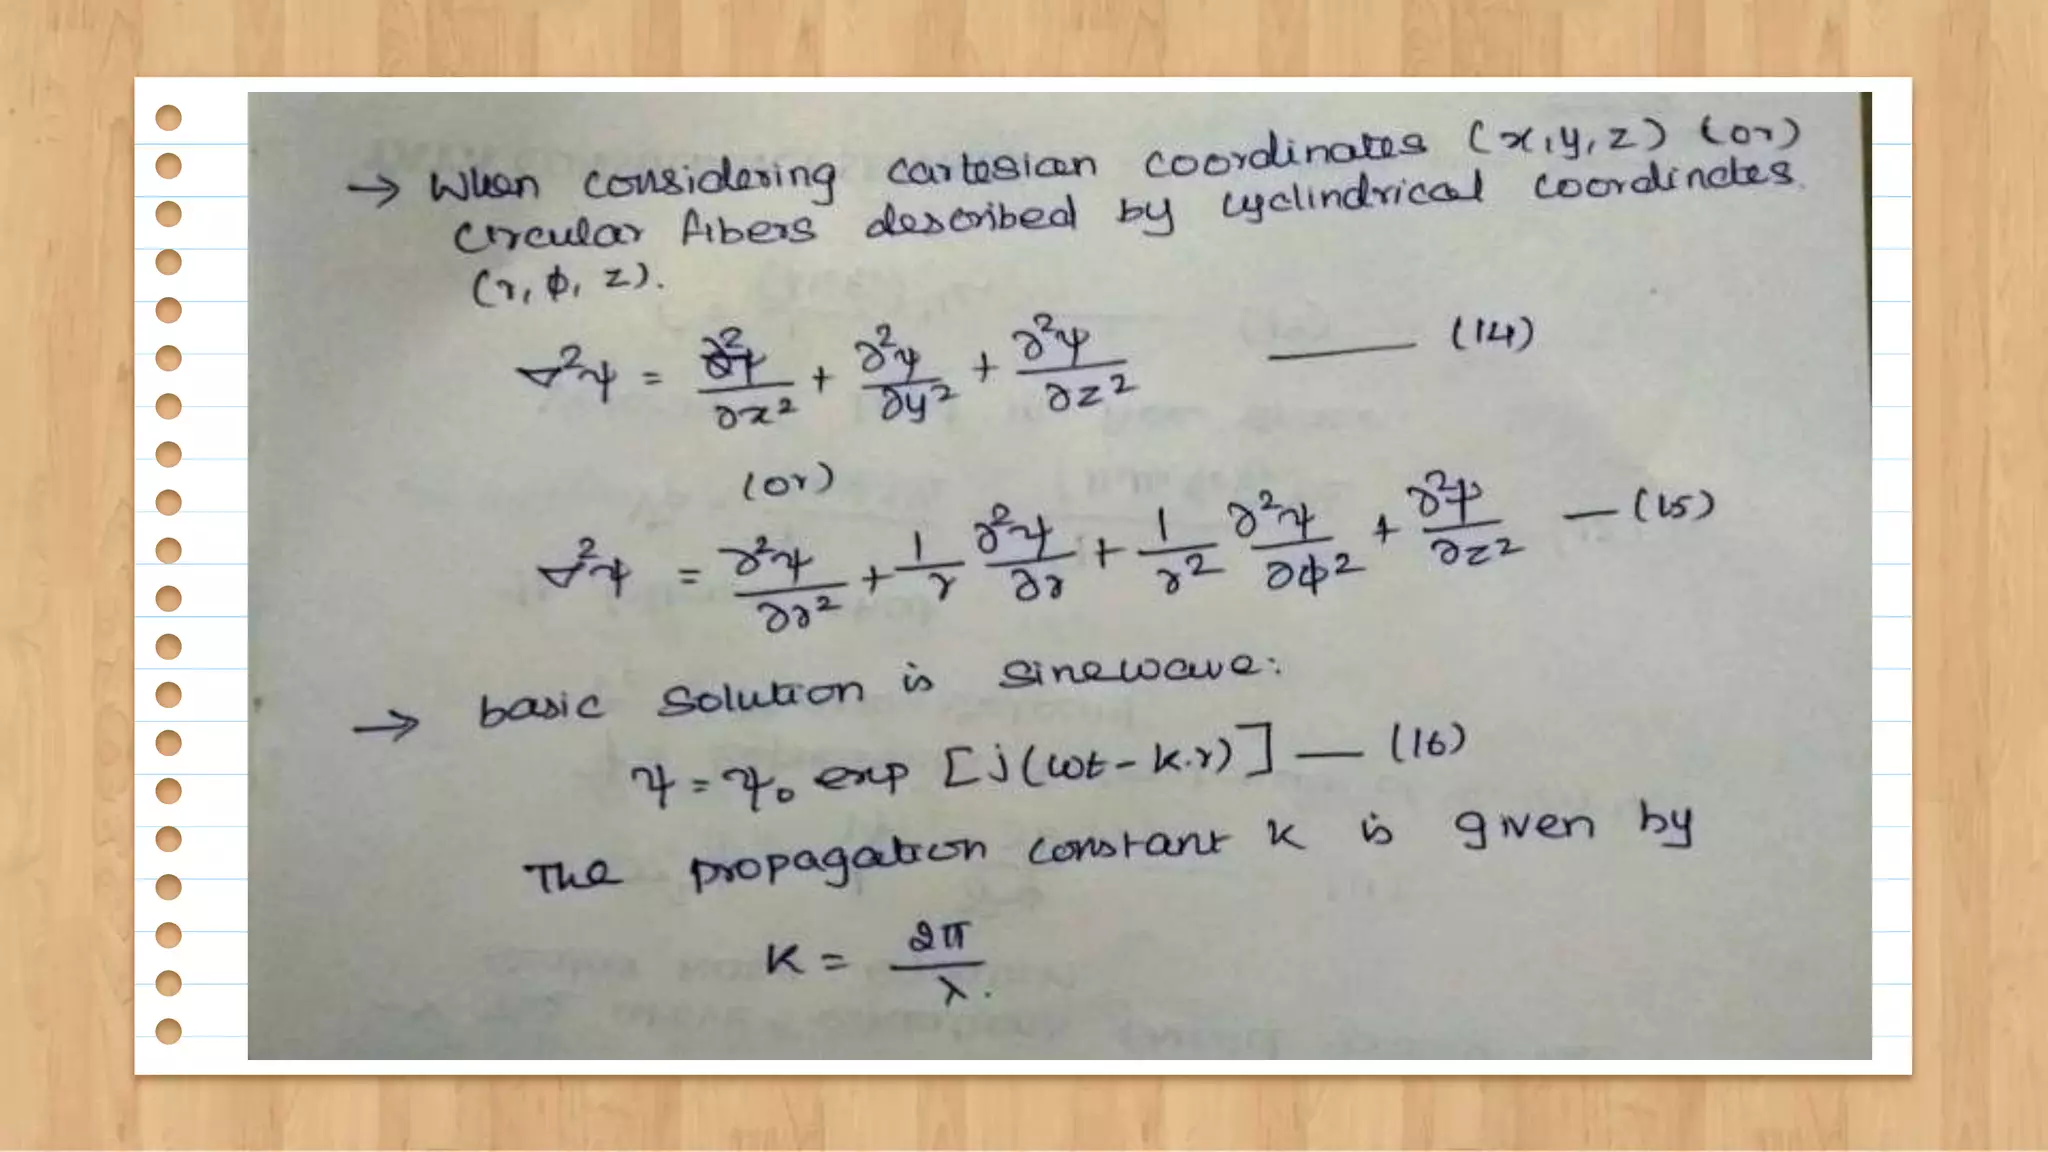 → When considering cartesian coordinates (x, y, z) (or)
circular fibers described by cyclindrical coordinates.
(r, ϕ, z).
∇²ψ = ∂²ψ/∂x² + ∂²ψ/∂y² + ∂²ψ/∂z² —— (14)
(or)
∇²ψ = ∂²ψ/∂r² + 1/r ∂²ψ/∂r + 1/r² ∂²ψ/∂ϕ² + ∂²ψ/∂z² — (15)
→ basic solution is sinewave:
ψ = ψ₀ exp [j(ωt - k.r)] — (16)
The propagation constant k is given by
K = 2π/λ.